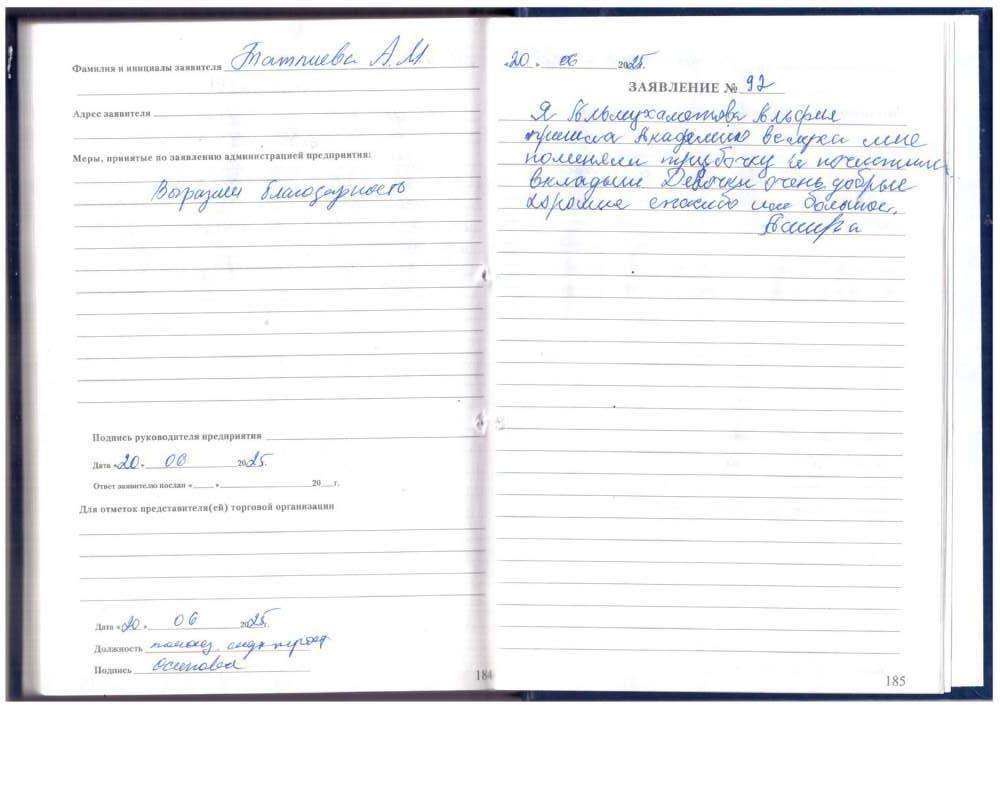 Фамилия и инициалы заявителя Татлиева А.М
Адрес заявителя
Меры, принятые по заявлению администрацией предприятия:
Выразили благодарность
Подпись руководителя предприятия
Дата «20» 06 2025г.
Ответ заявителю послан « » 20 г.
Для отметок представителя(ей) торговой организации
Дата «20» 06 2025г.
Должность
Подпись Осипова
184
«20» 06 2025г.
ЗАЯВЛЕНИЕ № 92
Я Гильмухаметова Альфия
пришла Академию вслуха мне
поменяли трубочку и почистили
вкладыши Девочки очень добрые
хорошие спасибо им большое.
185